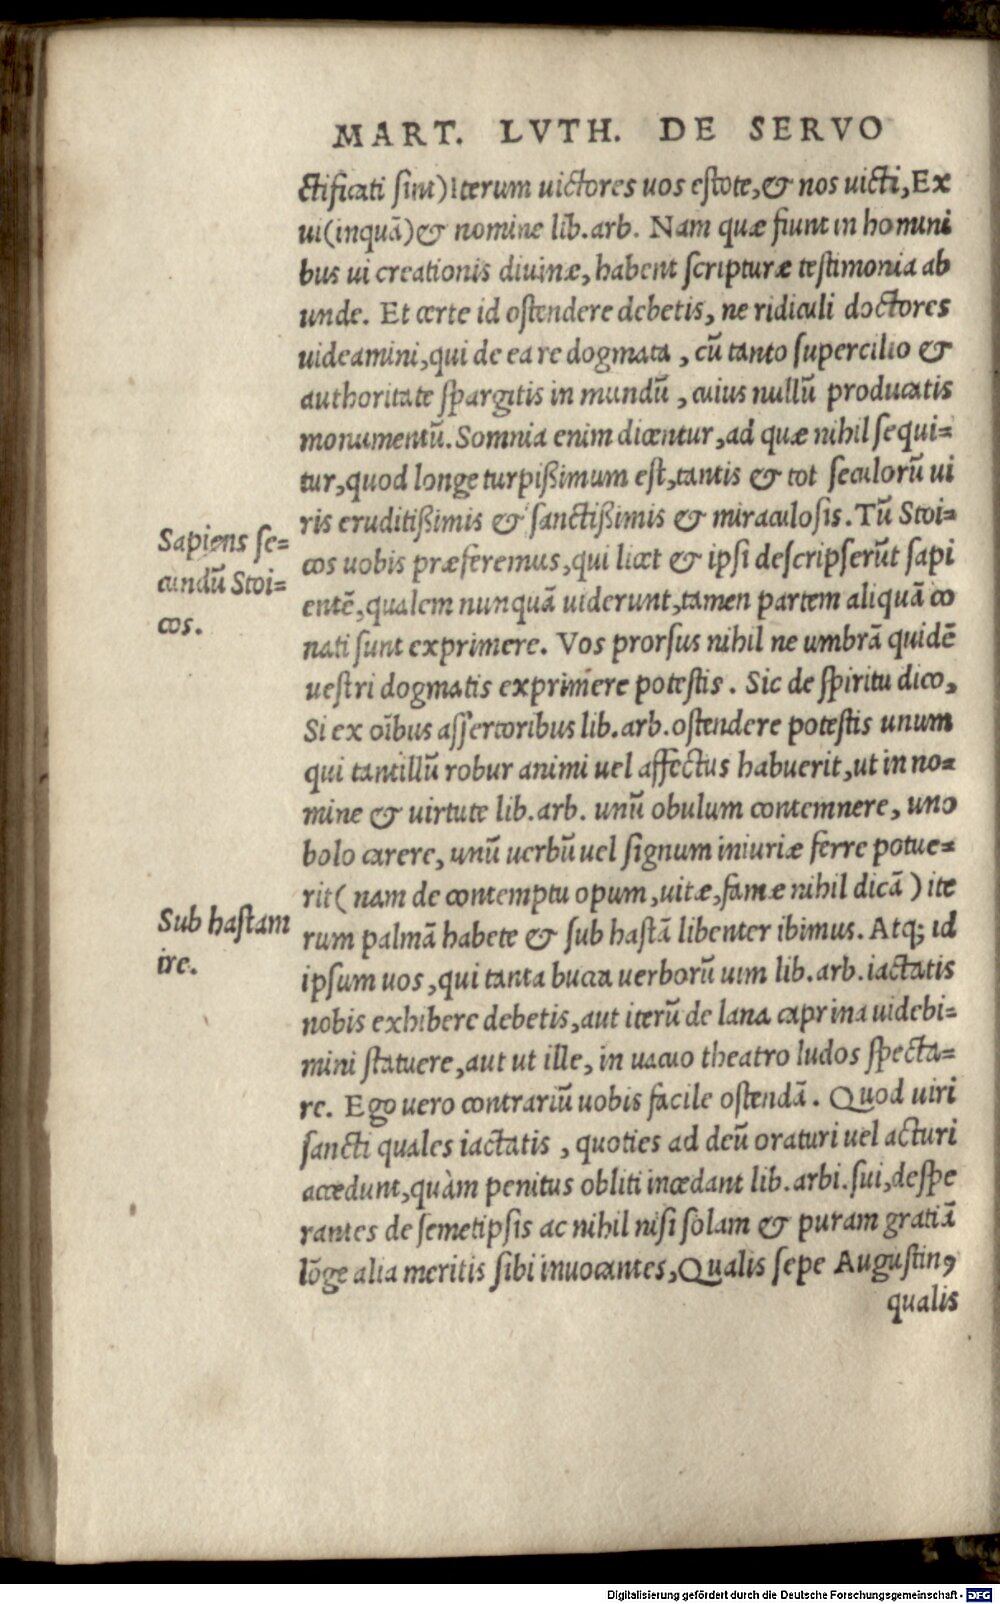 MART. LVTH. DE SERVO
ctificati sint) Iterum uictores uos estote, & nos uicti, Ex
ui (inquã) & nomine lib. arb. Nam quæ fiunt in homini
bus ui creationis diuinæ, habent scripturæ testimonia ab
unde. Et certe id ostendere debetis, ne ridiculi doctores
uideamini, qui de ea re dogmata, cũ tanto supercilio &
authoritate spargitis in mundũ, cuius nullũ producatis
monumentũ. Somnia enim dicentur, ad quæ nihil sequi=
tur, quod longe turpißimum est, tantis & tot seculorũ ui
ris eruditißimis & sanctißimis & miraculosis. Tũ Stoi=
Sapiens se=
cundũ Stoi=
cos.
cos uobis præferemus, qui licet & ipsi descripserũt sapi
entẽ, qualem nunquã uiderunt, tamen partem aliquã co
nati sunt exprimere. Vos prorsus nihil ne umbrã quidẽ
uestri dogmatis exprimere potestis. Sic de spiritu dico,
Si ex oĩbus assertoribus lib. arb. ostendere potestis unum
qui tantillũ robur animi uel affectus habuerit, ut in no=
mine & uirtute lib. arb. unũ obulum contemnere, uno
bolo carere, unũ uerbũ uel signum iniuriæ ferre potue=
rit ( nam de contemptu opum, uitæ, famæ nihil dicã ) ite
Sub hastam
ire.
rum palmã habete & sub hastã libenter ibimus. Atq; id
ipsum uos, qui tanta bucca uerborũ uim lib. arb. iactatis
nobis exhibere debetis, aut iterũ de lana caprina uidebi=
mini statuere, aut ut ille, in uacuo theatro ludos specta=
re. Ego uero contrariũ uobis facile ostendã. Quod uiri
sancti quales iactatis, quoties ad deũ oraturi uel acturi
accedunt, quàm penitus obliti incedant lib. arbi. sui, despe
rantes de semetipsis ac nihil nisi solam & puram gratiã
lõge alia meritis sibi inuocantes, Qualis sepe Augustinꝰ
qualis
Digitalisierung gefördert durch die Deutsche Forschungsgemeinschaft - DFG